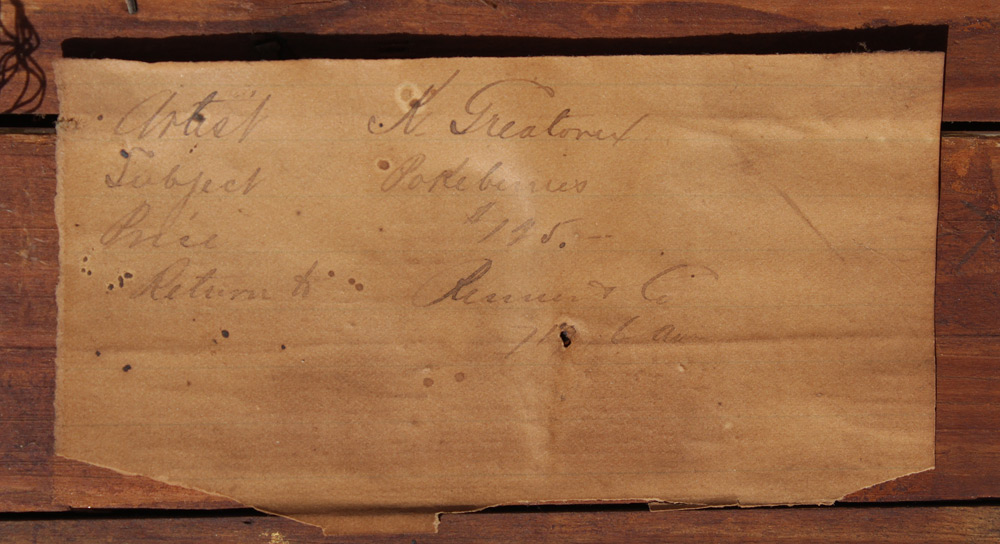 Artist K. Greatorex
Subject Pokeberries
Price $195.—
Return to & Co
6 Av